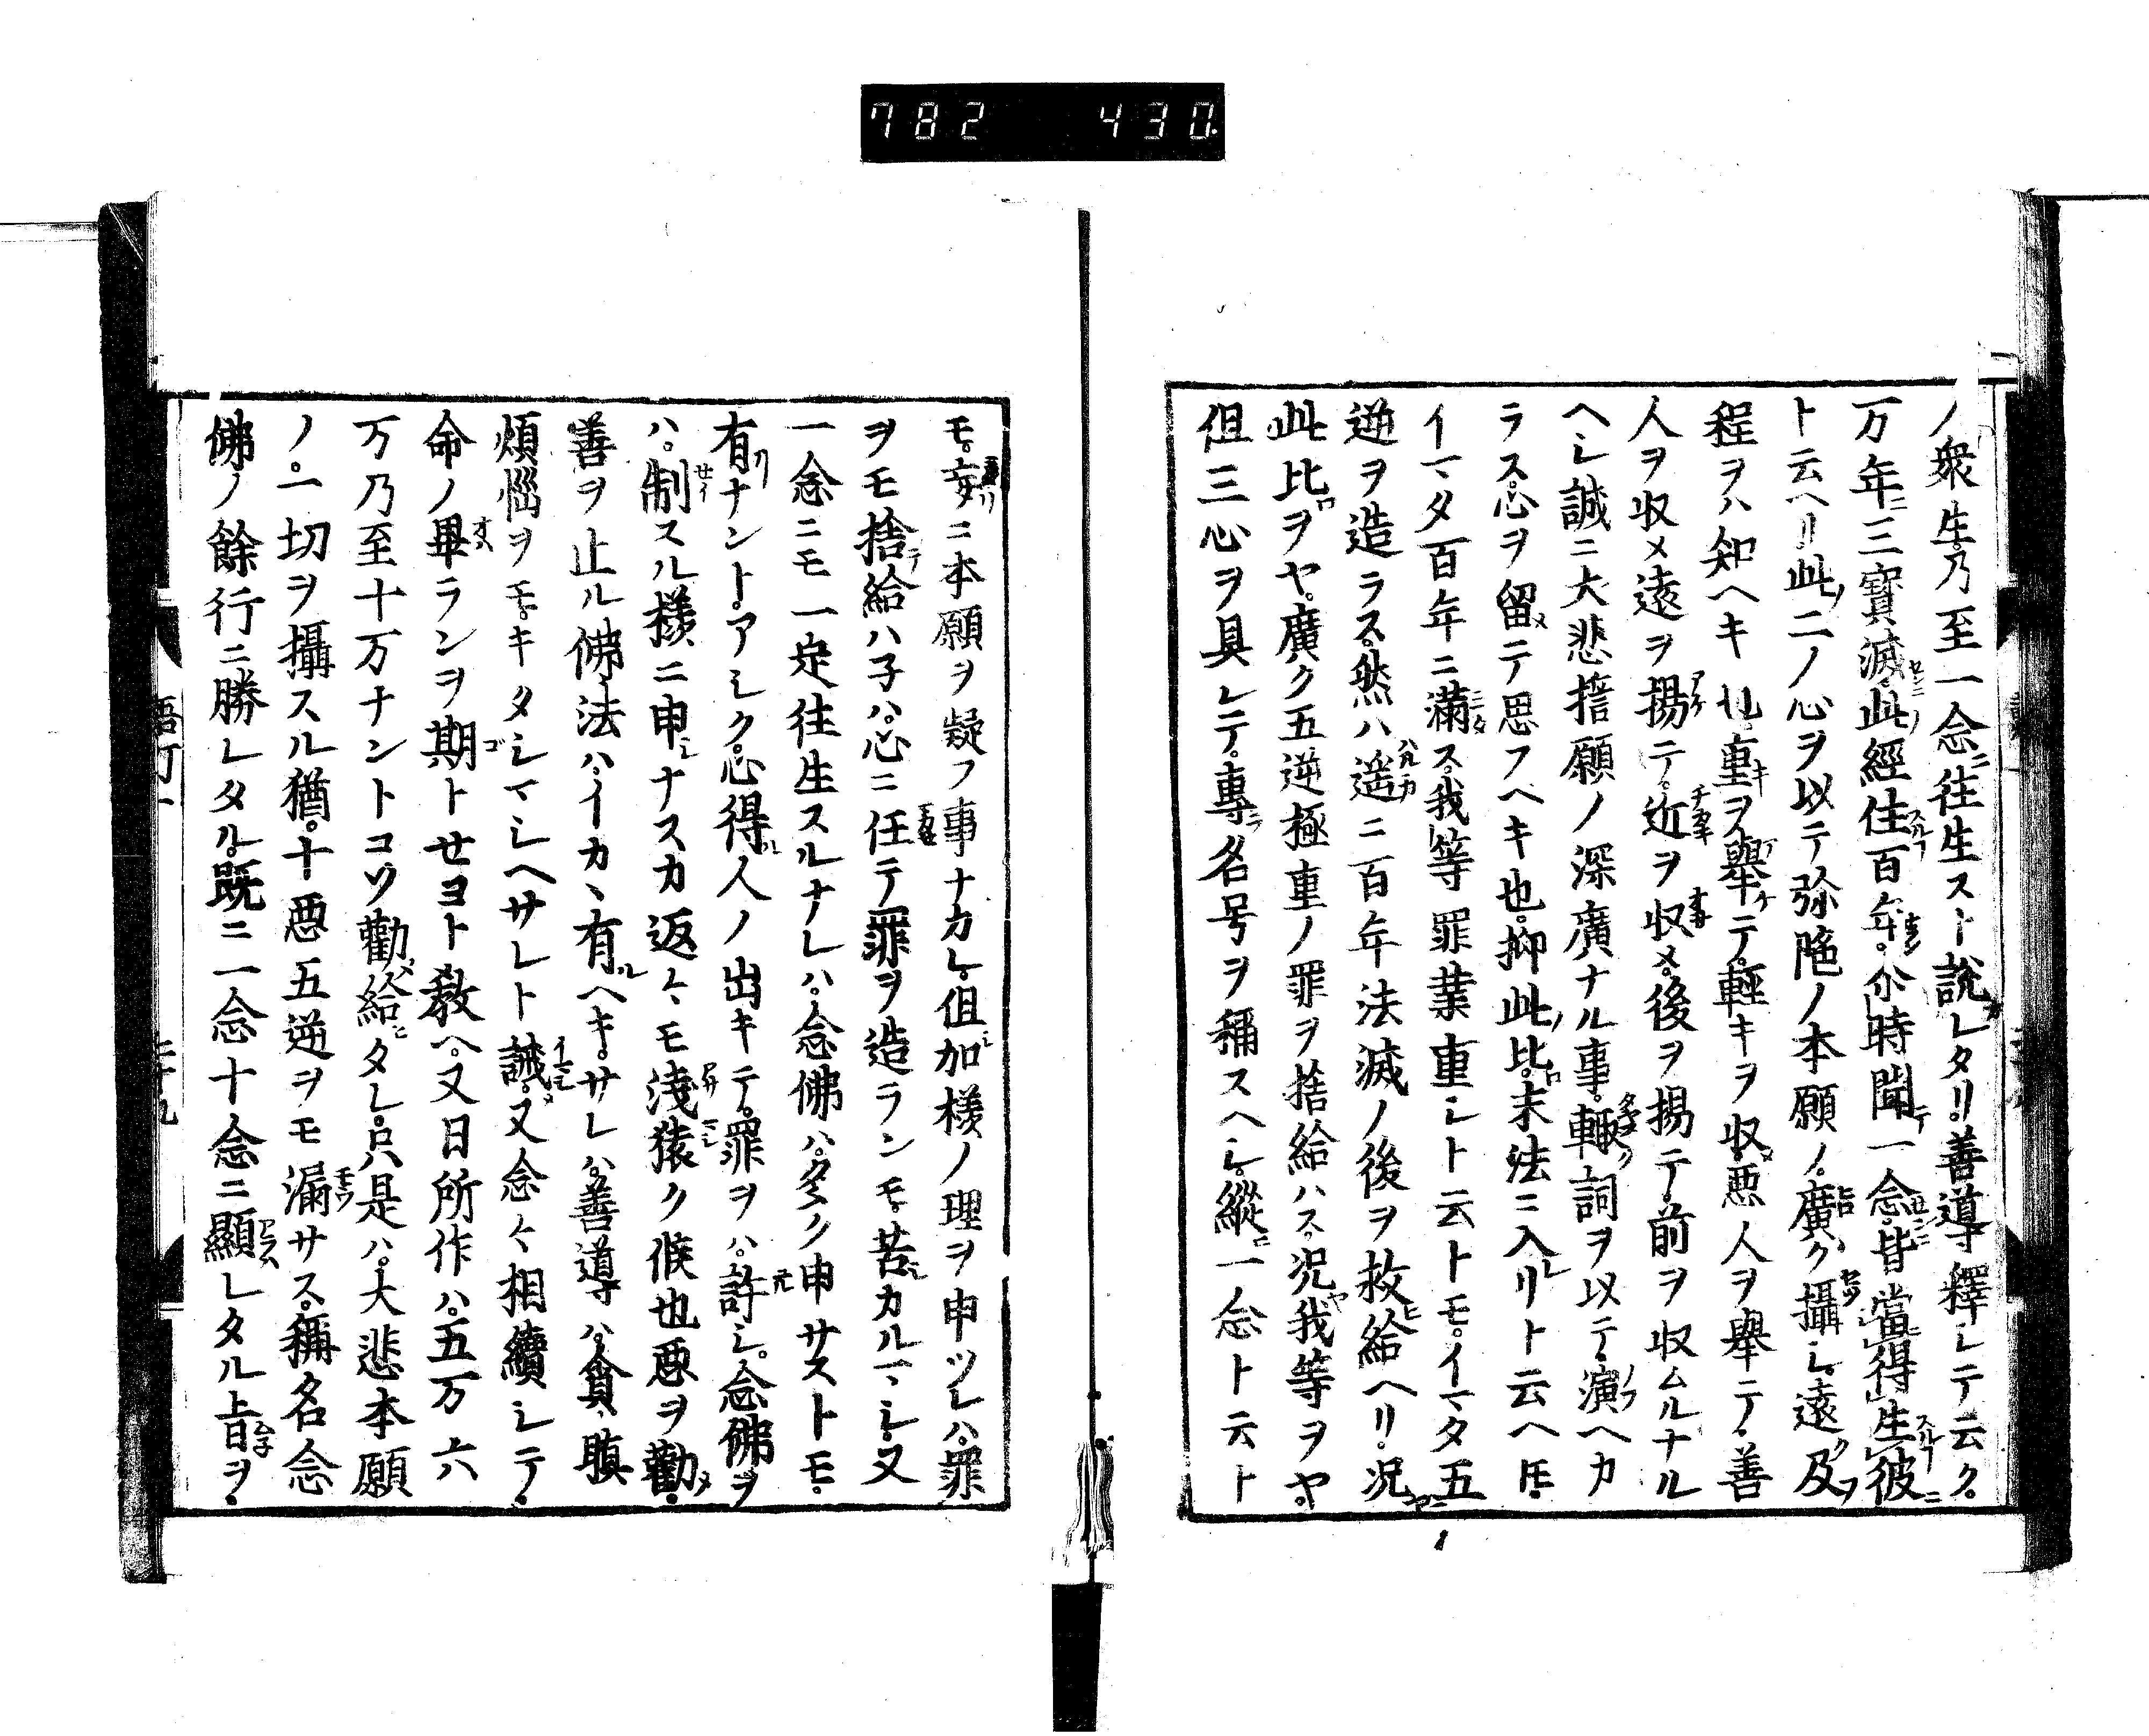 782 430
ノ衆生乃至一念往生スト説レタリ善導釋レテ云ク
万年三寳滅此經住百年尒時聞一念皆當得生彼
ト云ヘリ此二ノ心ヲ以テ弥陁ノ本願ノ廣ク攝シ遠及
程ヲハ知ヘキ也重ヲ舉テ輕キヲ収悪人ヲ舉テ善
人ヲ収メ遠ヲ揚テ近ヲ収メ後ヲ揚テ前ヲ収ムルナル
ヘシ誠ニ大悲擔願ノ深廣ナル事輙詞ヲ以テ演ヘカ
ラス心ヲ留テ思フヘキ也抑此比末法ニ入リト云ヘ𪜈
イマタ百年ニ滿ス我等罪業重シト云トモイマタ五
逆ヲ造ラス然ハ遥ニ百年法滅ノ後ヲ救給ヘリ況
此比ヲヤ廣ク五逆極重ノ罪ヲ捨給ハス況我等ヲヤ
但三心ヲ具レテ專名号ヲ稱スヘシ縱一念ト云ト
モ妄ニ本願ヲ疑フ事ナカレ但加様ノ理ヲ申ツレハ罪
ヲモ捨給ハ子ハ心ニ任テ罪ヲ造ランモ苦カルマシ又
一念ニモ一定往生スルナレハ念佛ハ多ク申サストモ
有ナントアシク心得人ノ出キテ罪ヲハ許シ念佛ヲ
ハ制スル様ニ申ナスカ返々モ淺猿ク候也悪ヲ勸
善ヲ止ル佛法ハイカヽ有ヘキサレハ善導ハ貪瞋
煩惱ヲモキタシマシヘサレト誡又念々相續シテ
命ノ畢ランヲ期トせヨト教ヘ又日所作ハ五万六
万乃至十万ナントコソ勸給タレ只是ハ大悲本願
ノ一切ヲ攝スル猶十悪五逆ヲモ漏サス稱名念
佛ノ餘行ニ勝レタル既ニ一念十念ニ顯レタル旨ヲ